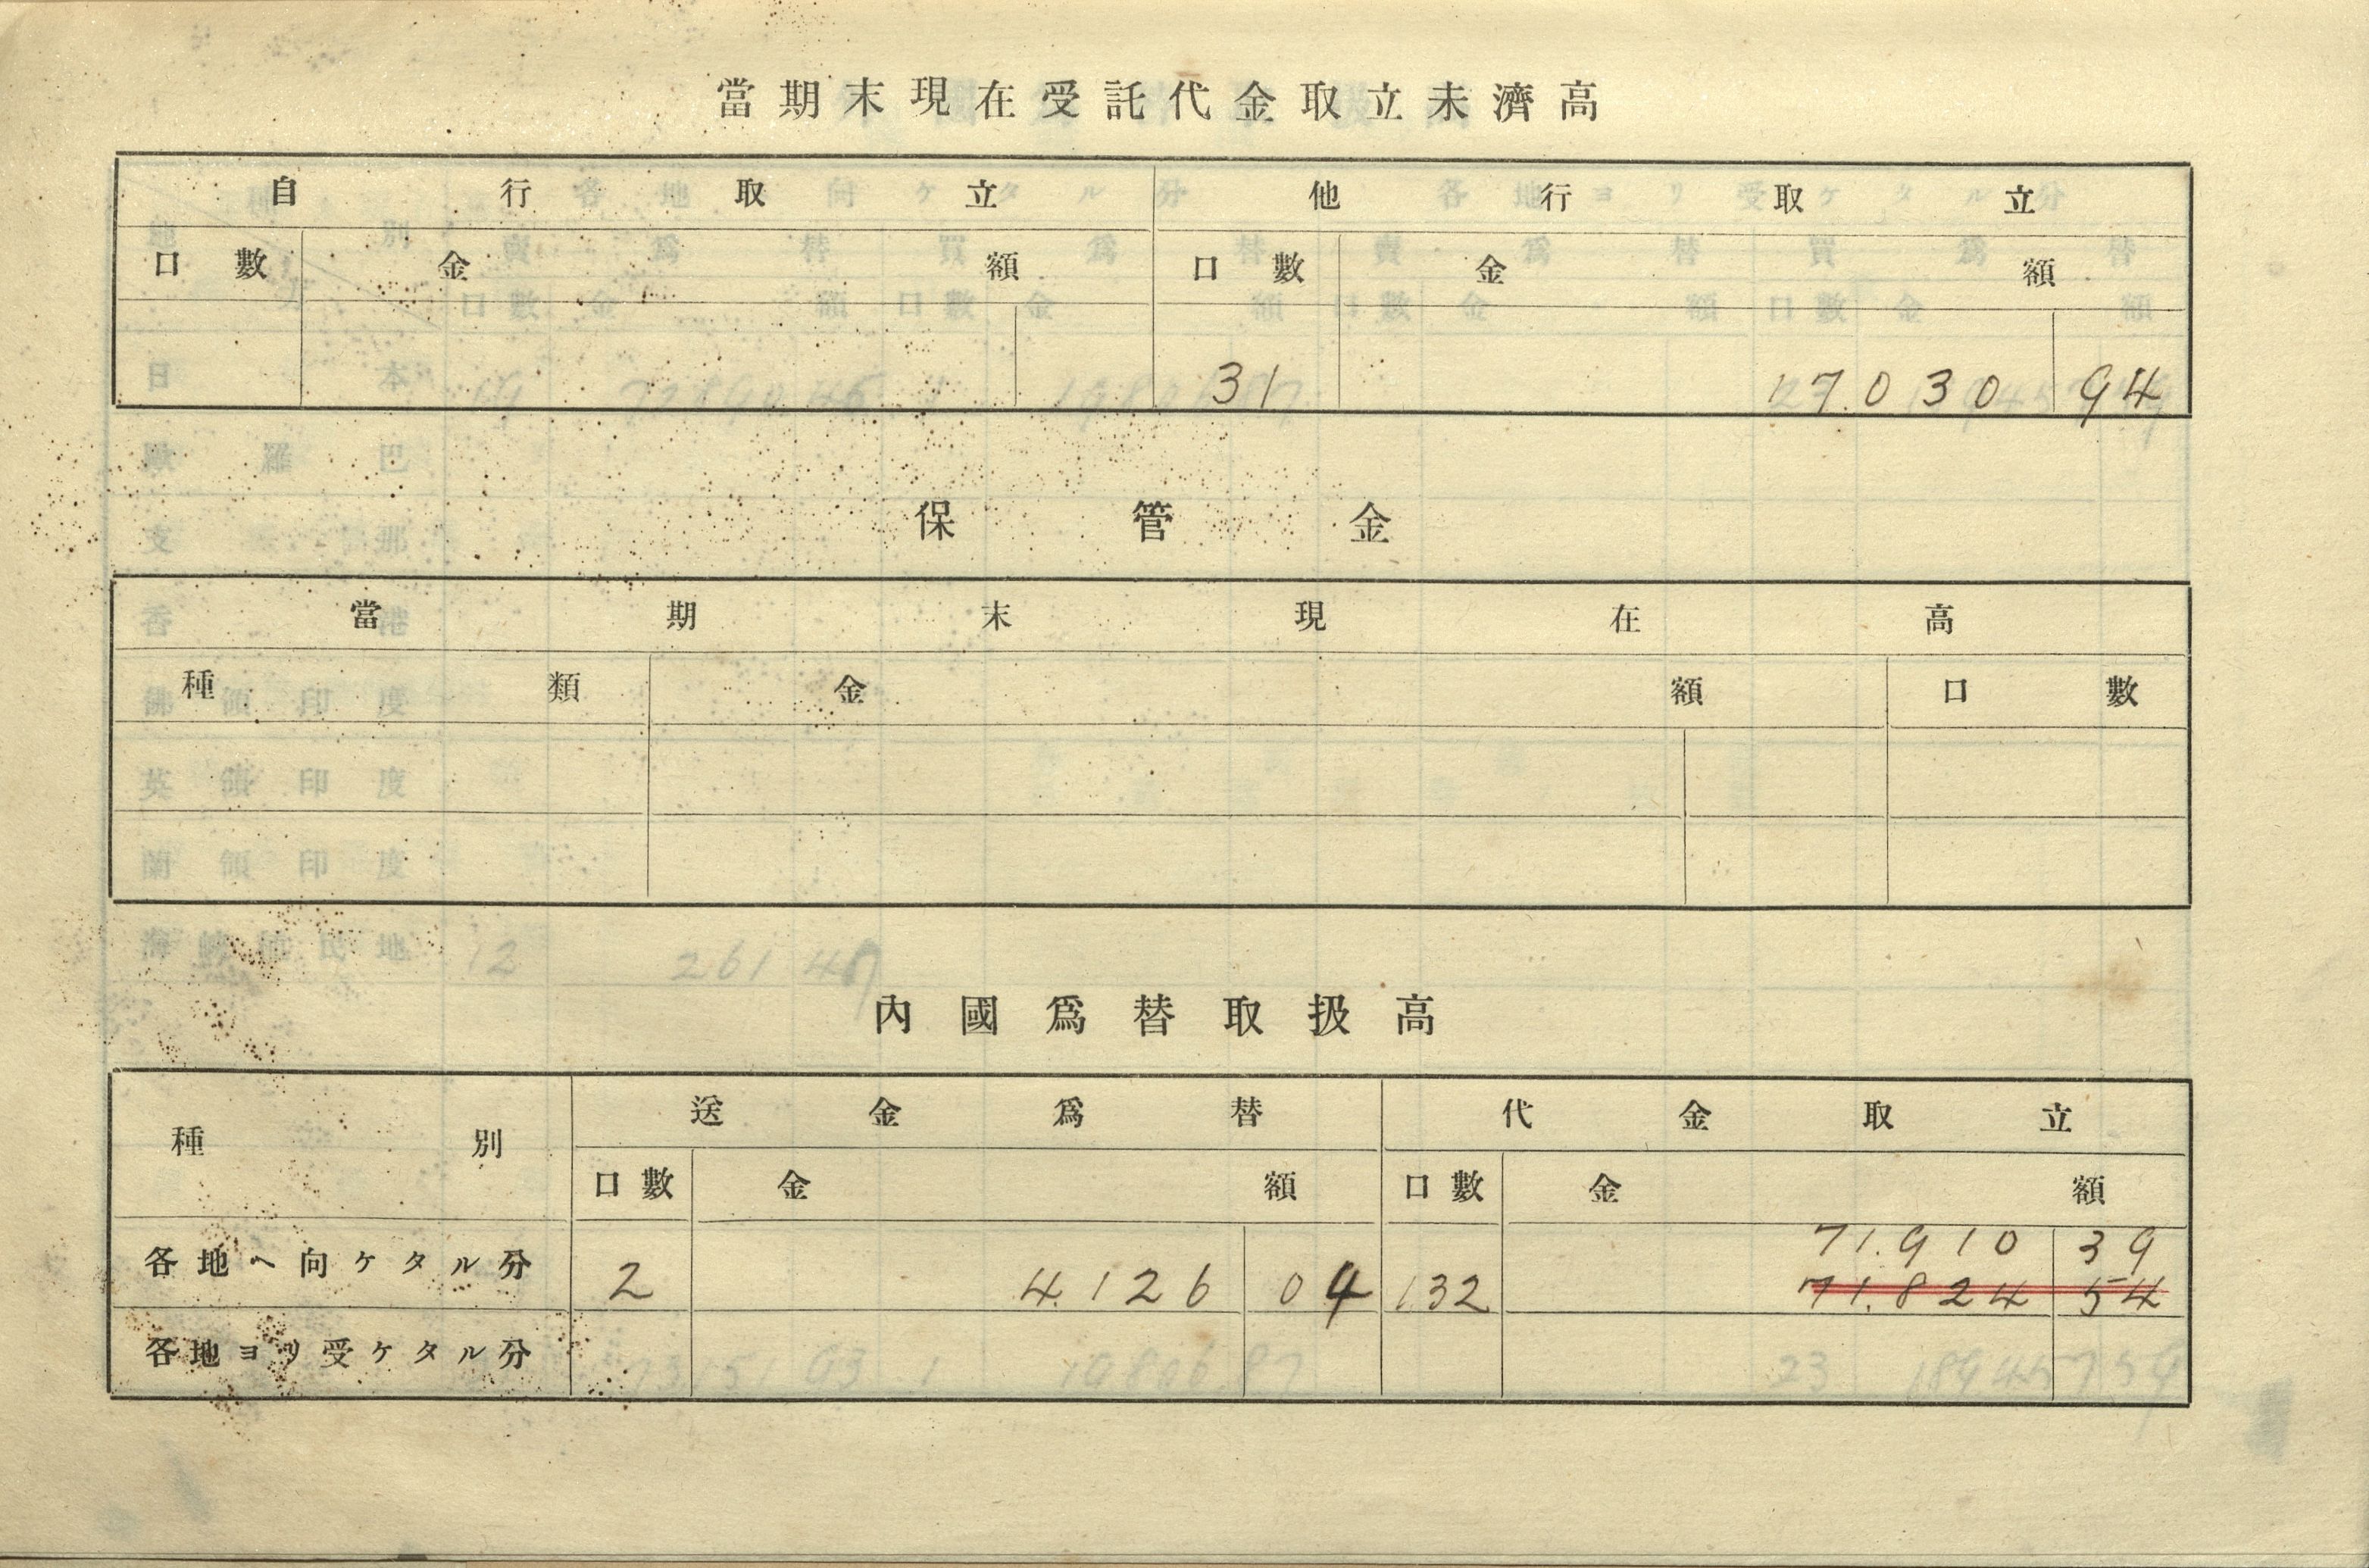 當期末現在受託代金取立未濟高
自行取立 他行取立
口數 金額 口數 金額
31 17.030 94
保管金
當期末現在高
種類 金額 口數
內國爲替取扱高
種別 送金爲替 代金取立
口數 金額 口數 金額
71.910 39
各地ヘ向ケタル分 2 4.126 04 132 71.824 54
各地ヨリ受ケタル分